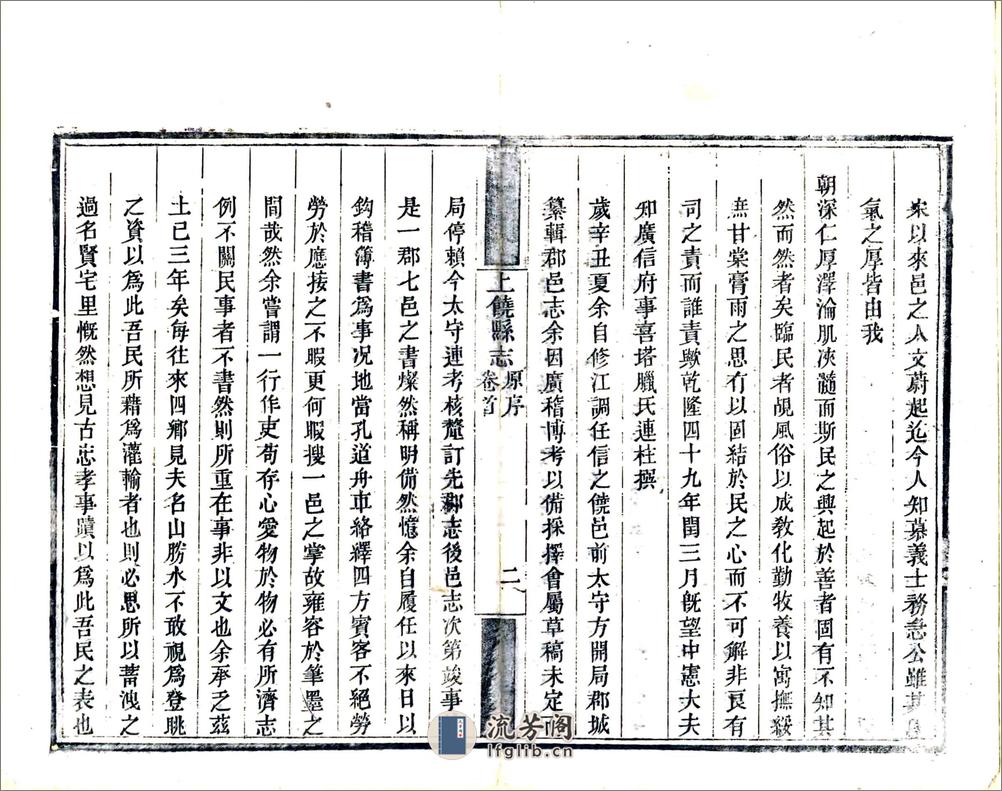 宋以來邑之人文蔚起迄今人知慕義士務急公雖其
氣之厚皆由我
朝深仁厚澤淪肌浹髓而斯民之興起於善者固有不知其
然而然者矣臨民者覘風俗以成教化勤牧養以寓撫綏
無甘棠膏雨之思有以固結於民之心而不可解非良有
司之責而誰責歟乾隆四十九年閏三月旣望中憲大夫
知廣信府事喜塔臘氏連柱撰
歲辛丑夏余自修江調任信之饒邑前太守方開局郡城
纂輯郡邑志余因廣稽博考以備採擇會屬草稿未定而
上饒縣志
原序
卷首
二
局停賴今太守連考核釐訂先郡志後邑志次第竣事
是一郡七邑之書燦然稱明備然憶余自履任以來日以
鈎稽簿書爲事况地當孔道舟車絡繹四方賓客不絕勞
勞於應接之不暇更何暇搜一邑之掌故雍容於筆墨之
間哉然余嘗謂一行作吏苟存心愛物於物必有所濟志
例不關民事者不書然則所重在事非以文也余承乏茲
土已三年矣每往來四鄉見夫名山勝水不敢視爲登眺
之資以爲此吾民所藉爲灌輸者也則必思所以蓄洩之
過名賢宅里慨然想見古忠孝事蹟以爲此吾民之表也
流芳阁
lfglib.cn